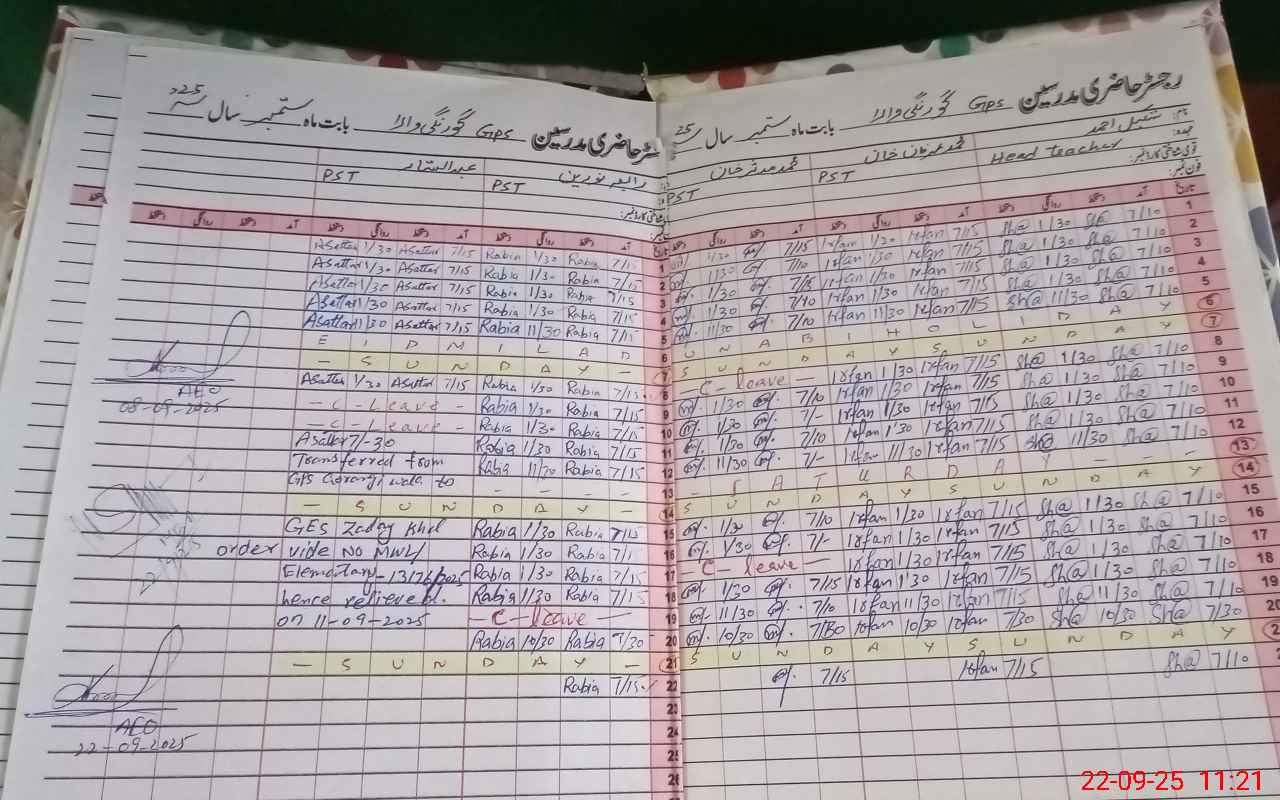 رجسٹر حاضری مدرسین GPS گورنگی والا بابت ماہ ستمبر سال 25
نام: شکیل احمد محمد عرفان خان محمد مدثر خان
عہدہ: Head teacher PST PST
قومی شناختی کارڈ نمبر:
فون نمبر:
تاریخ آمد دستخط روانگی دستخط آمد دستخط روانگی دستخط آمد دستخط روانگی دستخط
1 7/10 Sh@ 1/30 Sh@ 7/15 Irfan 1/30 Irfan 7/15 1/30
2 7/10 Sh@ 1/30 Sh@ 7/15 Irfan 1/30 Irfan 7/10 1/30
3 7/10 Sh@ 1/30 Sh@ 7/15 Irfan 1/30 Irfan 7/15 1/30
4 7/10 Sh@ 1/30 Sh@ 7/15 Irfan 1/30 Irfan 7/10 1/30
5 7/10 Sh@ 11/30 Sh@ 7/15 Irfan 11/30 Irfan 7/10 11/30
6 U N A B I H O L I D A Y
7 S U N D A Y S U N D A Y
8 7/10 Sh@ 1/30 Sh@ 7/15 Irfan 1/30 Irfan — C - leave —
9 7/10 Sh@ 1/30 Sh@ 7/15 Irfan 1/30 Irfan 7/10 1/30
10 7/10 Sh@ 1/30 Sh@ 7/15 Irfan 1/30 Irfan 7/- 1/30
11 7/10 Sh@ 1/30 Sh@ 7/15 Irfan 1/30 Irfan 7/10 1/30
12 7/10 Sh@ 11/30 Sh@ 7/15 Irfan 11/30 Irfan 7/- 11/30
13 — S A T U R D A Y — — —
14 S U N D A Y S U N D A Y
15 7/10 Sh@ 1/30 Sh@ 7/15 Irfan 1/30 Irfan 7/10 1/30
16 7/10 Sh@ 1/30 Sh@ 7/15 Irfan 1/30 Irfan 7/- 1/30
17 7/10 Sh@ 1/30 Sh@ 7/15 Irfan 1/30 Irfan — C - leave —
18 7/10 Sh@ 1/30 Sh@ 7/15 Irfan 1/30 Irfan 7/15 1/30
19 7/10 Sh@ 11/30 Sh@ 7/15 Irfan 11/30 Irfan 7/10 11/30
20 7/30 Sh@ 10/30 Sh@ 7/30 Irfan 10/30 Irfan 7/30 10/30
S U N D A Y S U N D A Y
7/10 Sh@ 7/15 Irfan 7/15
رجسٹر حاضری مدرسین GPS گورنگی والا بابت ماہ ستمبر سال 2025
رابعہ نورین عبدالستار
PST PST
آمد دستخط روانگی دستخط آمد دستخط روانگی دستخط آمد دستخط روانگی دستخط
1 7/15 Rabia 1/30 Rabia 7/15 Asattar 1/30 Asattar
2 7/15 Rabia 1/30 Rabia 7/15 Asattar 1/30 Asattar
3 7/15 Rabia 1/30 Rabia 7/15 Asattar 1/30 Asattar
4 7/15 Rabia 1/30 Rabia 7/15 Asattar 1/30 Asattar
5 7/15 Rabia 11/30 Rabia 7/15 Asattar 11/30 Asattar
6 E I D M I L A D
7 — S U N D A Y —
8 7/15 Rabia 1/30 Rabia 7/15 Asattar 1/30 Asattar
AEO
08-09-2025
9 7/15 Rabia 1/30 Rabia — C - Leave —
10 7/15 Rabia 1/30 Rabia — C - Leave —
11 7/15 Rabia 1/30 Rabia Asattar 7/-30
12 7/15 Rabia 11/30 Rabia Transferred from
13 — — — — GPS Gorangi wala to
14 — S U N D A Y —
15 7/15 Rabia 1/30 Rabia GES Zaday Khel
16 7/15 Rabia 1/30 Rabia order vide NO MWL/
17 7/15 Rabia 1/30 Rabia Elementary-1376/2025
18 7/15 Rabia 1/30 Rabia hence relieved.
19 — C - leave — on 11-09-2025
20 7/30 Rabia 10/30 Rabia
21 — S U N D A Y —
22 7/15 Rabia
AEO
22-09-2025
23
24
25
26
22-09-25 11:21